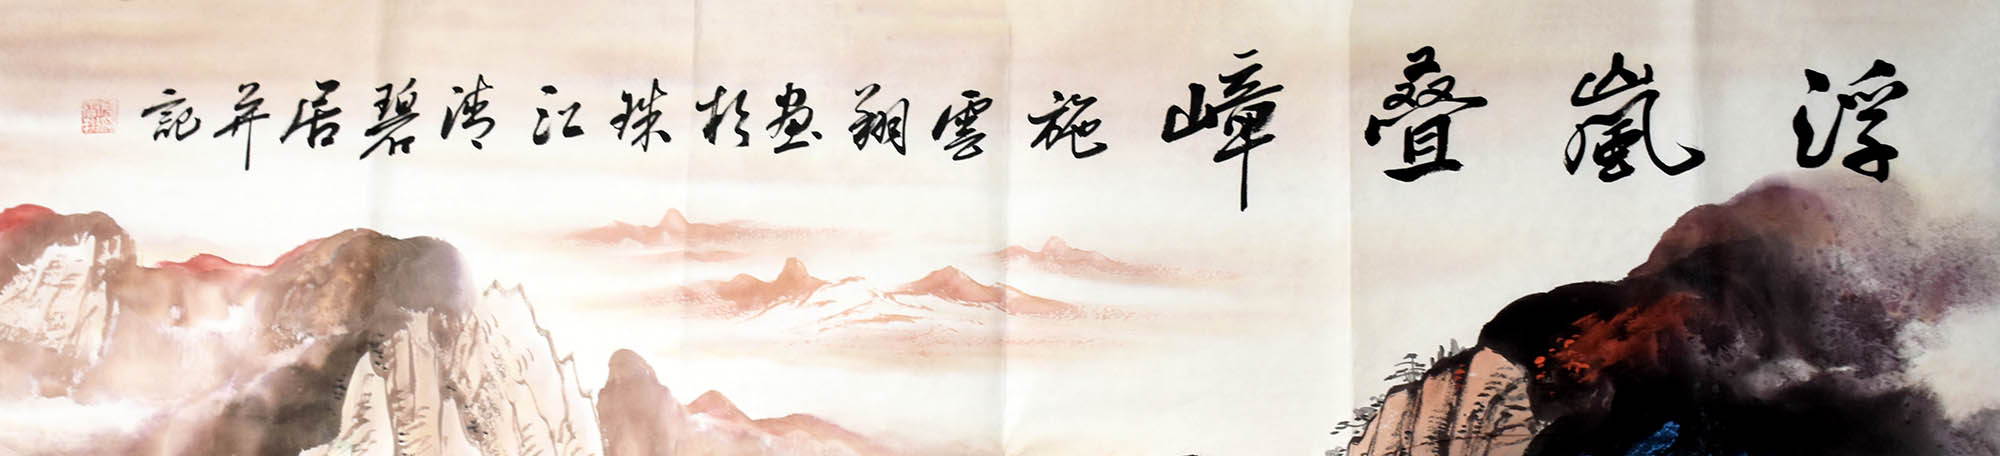 浮嵐叠嶂施雲翔画於珠江清碧居并記